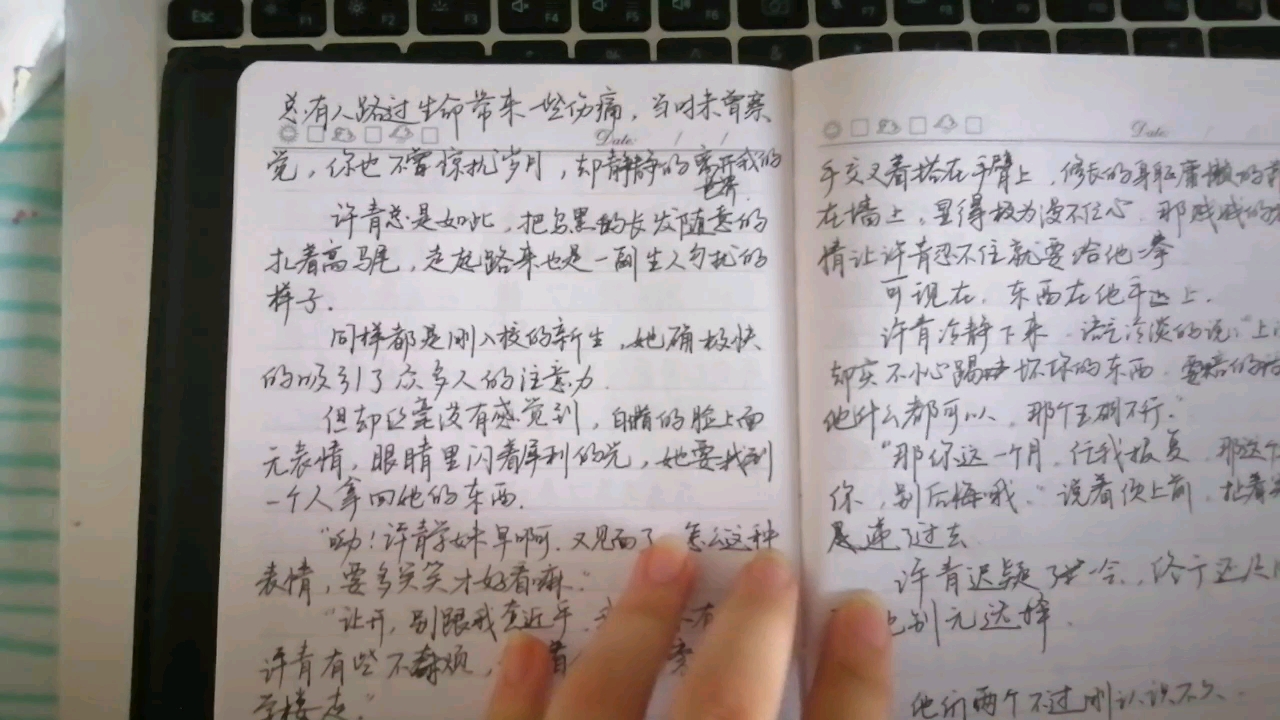 Esc
F1
F2
F3
F4
F5
F6
总有人路过生命带来一些伤痛，当时未曾察
Date: / /
觉，你也不曾惊扰岁月，却静静的离开我的
世界.
许青总是如此，把乌黑的长发随意的
扎着高马尾，走起路来也是一副生人勿扰的
样子.
同样都是刚入校的新生，她确极快
的吸引了众多人的注意力.
但却丝毫没有感觉到，白皙的脸上面
无表情，眼睛里闪着犀利的光，她要找到
一个人拿回她的东西.
"呦！许青学妹早啊.又见面了 怎么这种
表情，要多笑笑才好看嘛."
"让开，别跟我套近乎.
许青有些不耐烦，
学楼走."
Date: /
手交叉着搭在手臂上，修长的身躯慵懒的
在墙上，显得极为漫不经心.那贱贱的
情让许青忍不住就要给他一拳
可现在，东西在他手上.
许青冷静下来.语气冷淡的说："上
却实不小心踢坏你的东西.
他什么都可以，那个玉佩不行."
"那你这一个月，任我报复.那这个
你，别后悔哦."说着便上前.
递了过去
许青迟疑了
也别无选择.
他们两个不过刚认识不久.